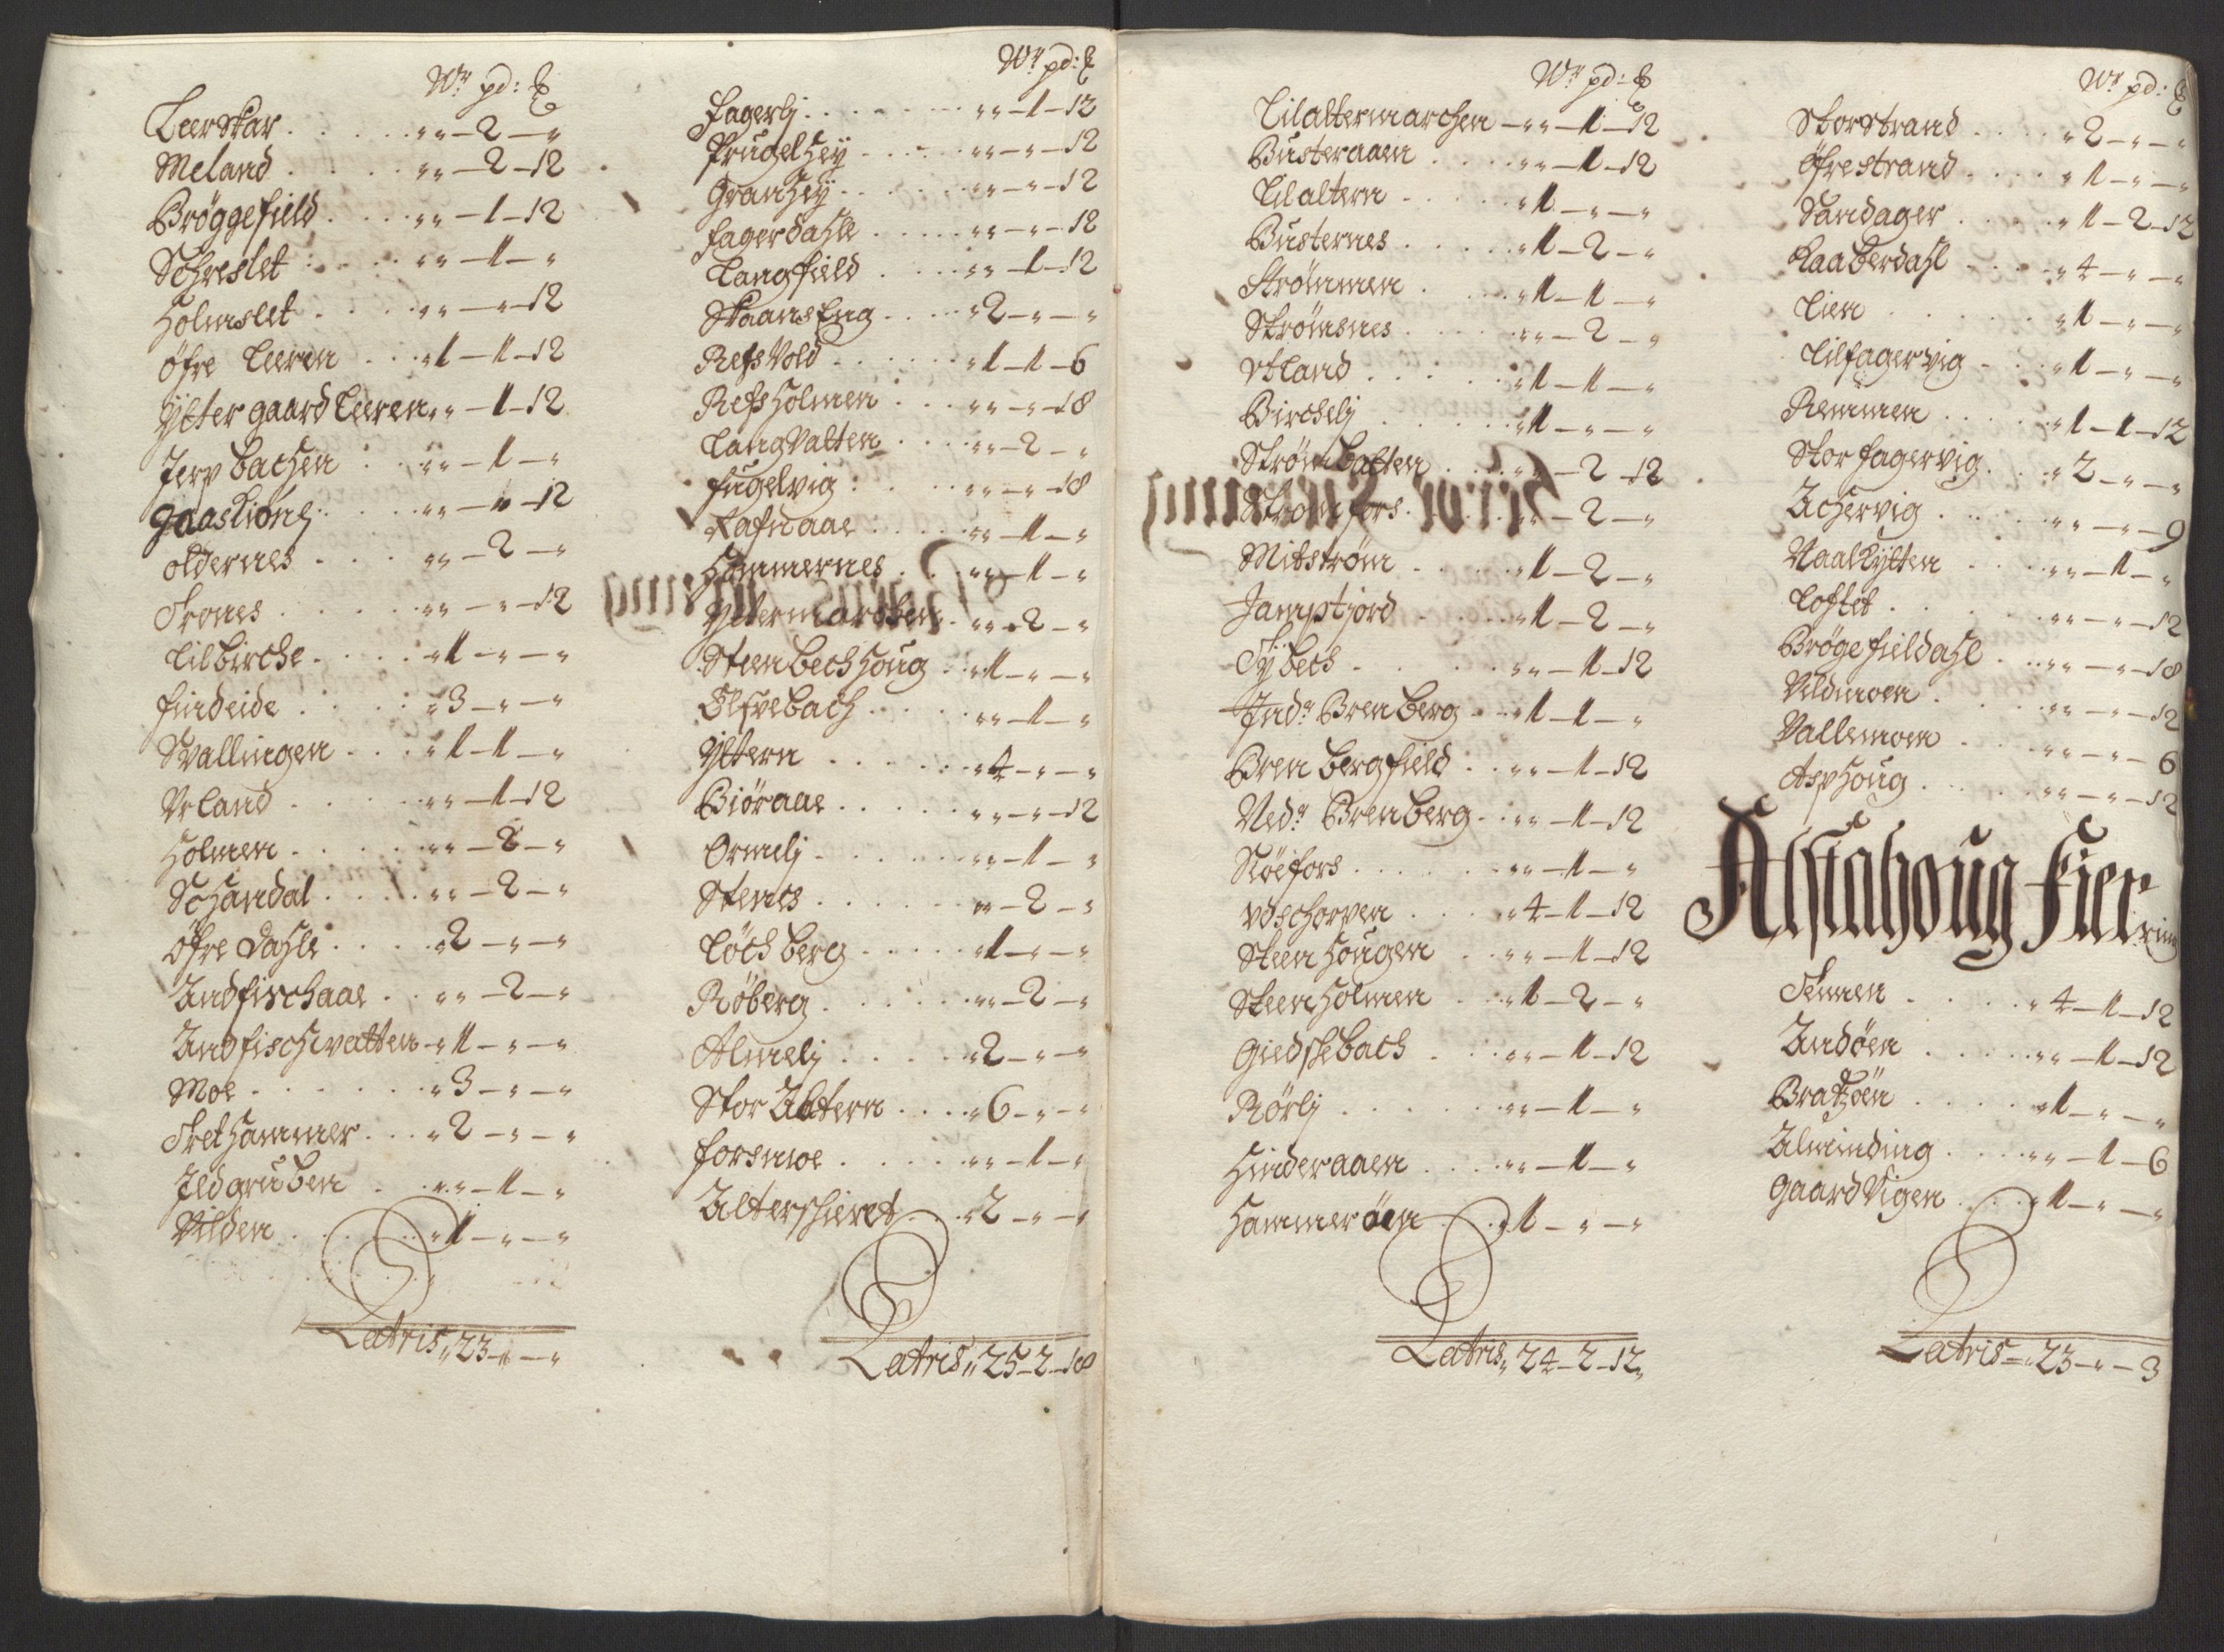 Wr pd: ℔
Leerskar . . . . . „ „ – 2 – „
Meland . . . . „ „ – 2 – 12
Brøggefield . . . . „ „ – 1 – 12
Schreslet . . . . „ „ – 1 – „
Holmslet . . . . „ „ – „ – 12
Øfre Leeren . . . „ 1 – 1 – 12
Ytter gaard Leeren „ „ – 1 – 12
Jerpbachen . . „ „ – 1 – „
Gaaskiønlj . . . „ „ – „ – 12
Oldernes . . . . „ „ – 2 – „
Trones . . . . . „ „ – „ – 12
Lilbirche . . . . „ 1 – „ – „
Findeide . . . . „ 3 – „ – „
Svallingen . . . „ 1 – 1 – „
Urland . . . . . „ „ – 1 – 12
Holmen . . . . . „ „ – 2 – „
Schandal . . . . „ „ – 2 – „
Øfre Dahle . . . . „ 2 – „ – „
Andfischaae . . „ „ – 2 – „
Andfischvatten – „ 1 – „ – „
Moe . . . . . . „ 3 – „ – „
Trethammer . . . „ 2 – „ – „
Ildgruben . . „ „ – 1 – „
Vilden . . . . . „ 1 – „ – „
Latris „ 23 – „ – „
Wr pd: ℔
Fagerlj . . . . . „ „ – 1 – 12
Prugelhey . . . . „ „ – „ – 12
Granhey . . . . . „ „ – „ – 12
Fagerdahle . . . . „ „ – „ – 12
Langfield . . . . „ „ – 1 – 12
Skaanseng . . . . „ 2 – „ – „
Refsvold . . . . . „ 1 – 1 – 6
Refsholmen . . . „ „ – „ – 18
Langvatten . . . . „ „ – 2 – „
Fugelvig . . . . „ „ – „ – 18
Rafnaae . . . . „ „ – 1 – „
Hammernes . . . „ „ – 1 – „
Yttermarchen . „ „ – 2 – „
Steenbechhoug . . „ 1 – „ – „
Elfvebach . . . . „ „ – 1 – „
Yttern . . . . . „ 4 – „ – „
Biøraae . . . . . „ „ – „ – 12
Ormelj . . . . . „ „ – 1 – „
Stenes . . . . . „ „ – 2 – „
Løchberg . . . . . „ 1 – „ – „
Røberg . . . . . „ „ – 2 – „
Almelj . . . . . „ 2 – „ – „
Stor Altern . . . . „ 6 – „ – „
Forsmoe . . . . . „ „ – 1 – „
Alterschieret . . . „ 2 – „ – „
Latris „ 25 – 2 – 18
Wr pd: ℔
Lilaltermarchen – „ „ – 1 – 12
Busteraaen . . . . „ „ – 1 – 12
Lilaltern . . . . . „ 1 – „ – „
Busternes . . . . . „ 1 – 2 – „
Strømmen . . . . „ 1 – 1 – „
Strømsnes . . . . „ „ – 2 – „
Utland . . . . . „ 1 – 1 – „
Birchelj . . . . . „ 1 – „ – „
Strømbatten . . . „ „ – 2 – 12
Strømfors . . . . „ „ – 2 – „
Mitstrøm . . . . „ 1 – 2 – „
Jamptjord . . . . „ 1 – 2 – „
Tÿbech . . . . . „ „ – 1 – 12
Indr Brenberg . . „ 1 – 1 – „
Brenbergfield . . „ „ – 1 – 12
Nedr Brenberg . . „ „ – 1 – 12
Støefors . . . . . „ „ – 1 – „
Udschorpen . . . „ 4 – 1 – 12
Steenhougen . . „ „ – 1 – 12
Steenholmen . . . „ 1 – 2 – „
Giedskebach . . . „ „ – 1 – 12
Rørlj . . . . . „ „ – 1 – „
Hinderaaen . . . . „ „ – 1 – „
Hammerøen . . . „ 1 – „ – „
Latris „ 24 – 2 – 12 „
Wr pd: ℔
Storstrand . . . . „ 2 – „ – „
Øfrestrand . . . . „ 1 – „ – „
Sandager . . . . . „ 1 – 2 – 12
Raaberdahl . . . . „ 4 – „ – „
Lien . . . . . „ 1 – „ – „
Lilfagervig . . . „ 1 – „ – „
Remmen . . . . . „ 1 – 1 – 12
Storfagervig . . . „ 2 – „ – „
Achervig . . . . „ „ – „ – 9
Naalkytten . . . „ „ – 1 – „
Loftet . . . . . „ „ – „ – 12
Brøgefieldahl . . . „ „ – „ – 18
Vildmoen . . . . . „ „ – „ – 12
Vallemoen . . . . „ „ – „ – 6
Asphoug . . . . . „ „ – „ – 12
Alstahoug Fierring
Temen . . . . . „ 4 – 1 – 12
Andøen . . . . . „ „ – 1 – 12
Bratzøen . . . . . „ 1 – „ – „
Alminding . . . . „ „ – 1 – 6
Gaardvigen . . . . „ 1 – „ – „
Latris – „ 23 – „ – 3